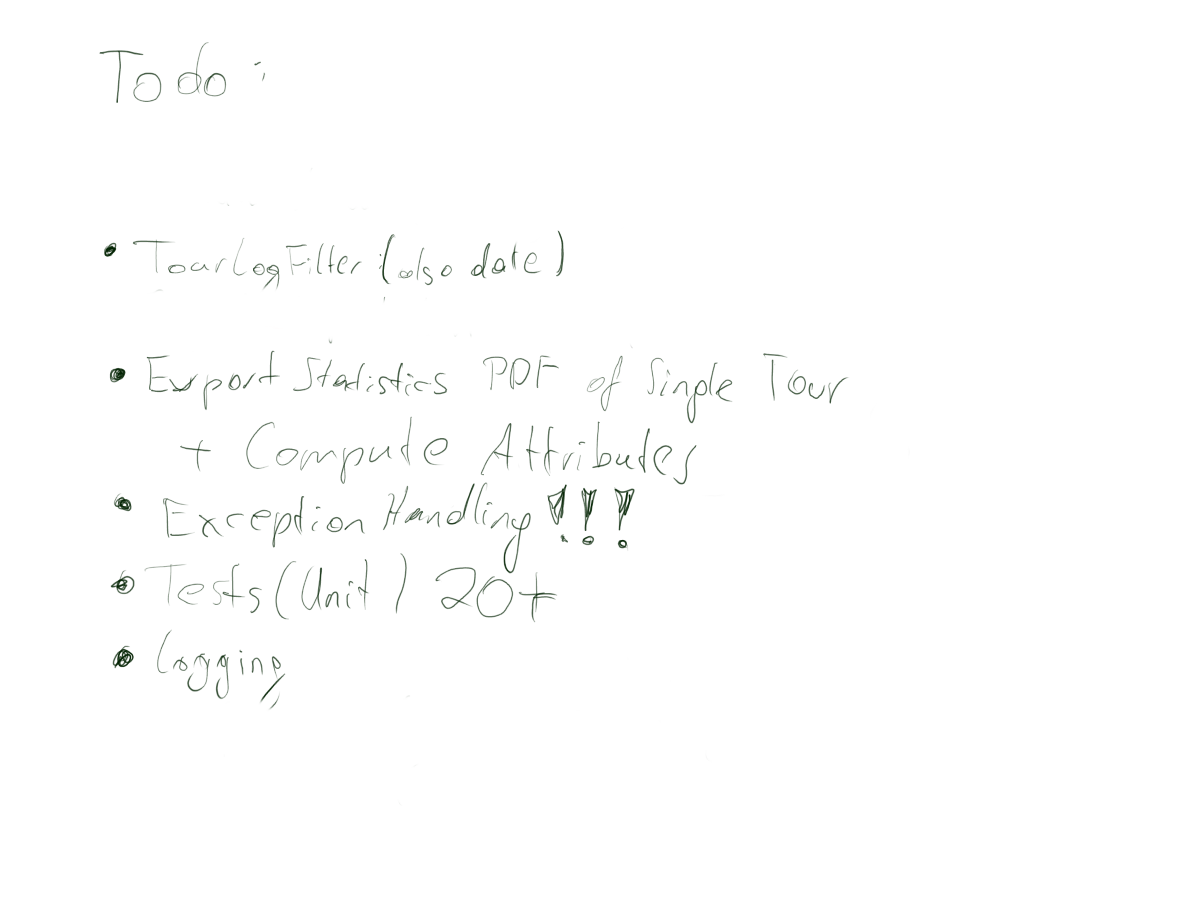 Todo:
• TourLogFilter (also date)
• Export Statistics PDF of Single Tour
+ Compute Attributes
• Exception Handling !!!
• Tests (Unit) 20+
• Logging